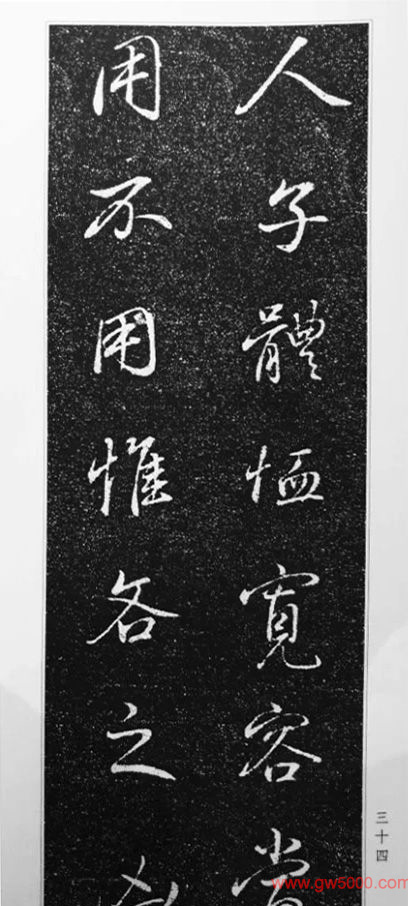 人子體恤寬容
用不用惟各之
三十四
www.gw5000.com